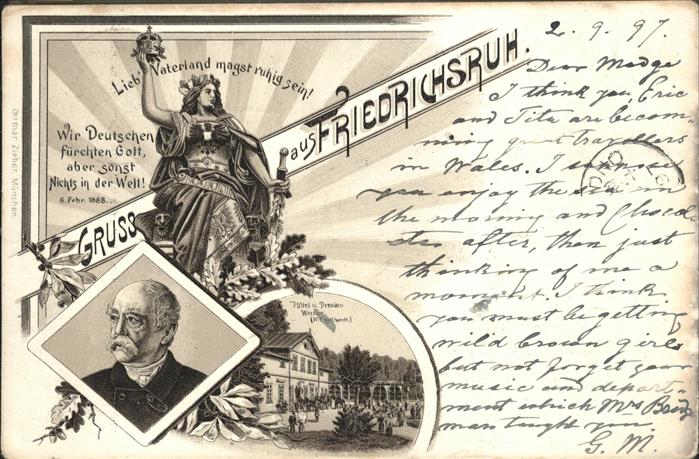 Lieb' Vaterland magst ruhig sein!
Wir Deutschen
fürchten Gott,
aber sonst
Nichts in der Welt!
6. Febr. 1888.
GRUSS aus FRIEDRICHSRUH.
Ottmar Zieher, München.
Hôtel u. Pension
2. 9. 97.
Dear Madge
I think you, Eric
and Tita are becom-
ming great travellers
in Wales. I suppose
you enjoy the sea in
the morning and Choco
lates after, then just
thinking of me a
moment. I think
you must be getting
wild brown girls
but not forget your
music and depart-
ment which Mrs
man taught you.
G. M.